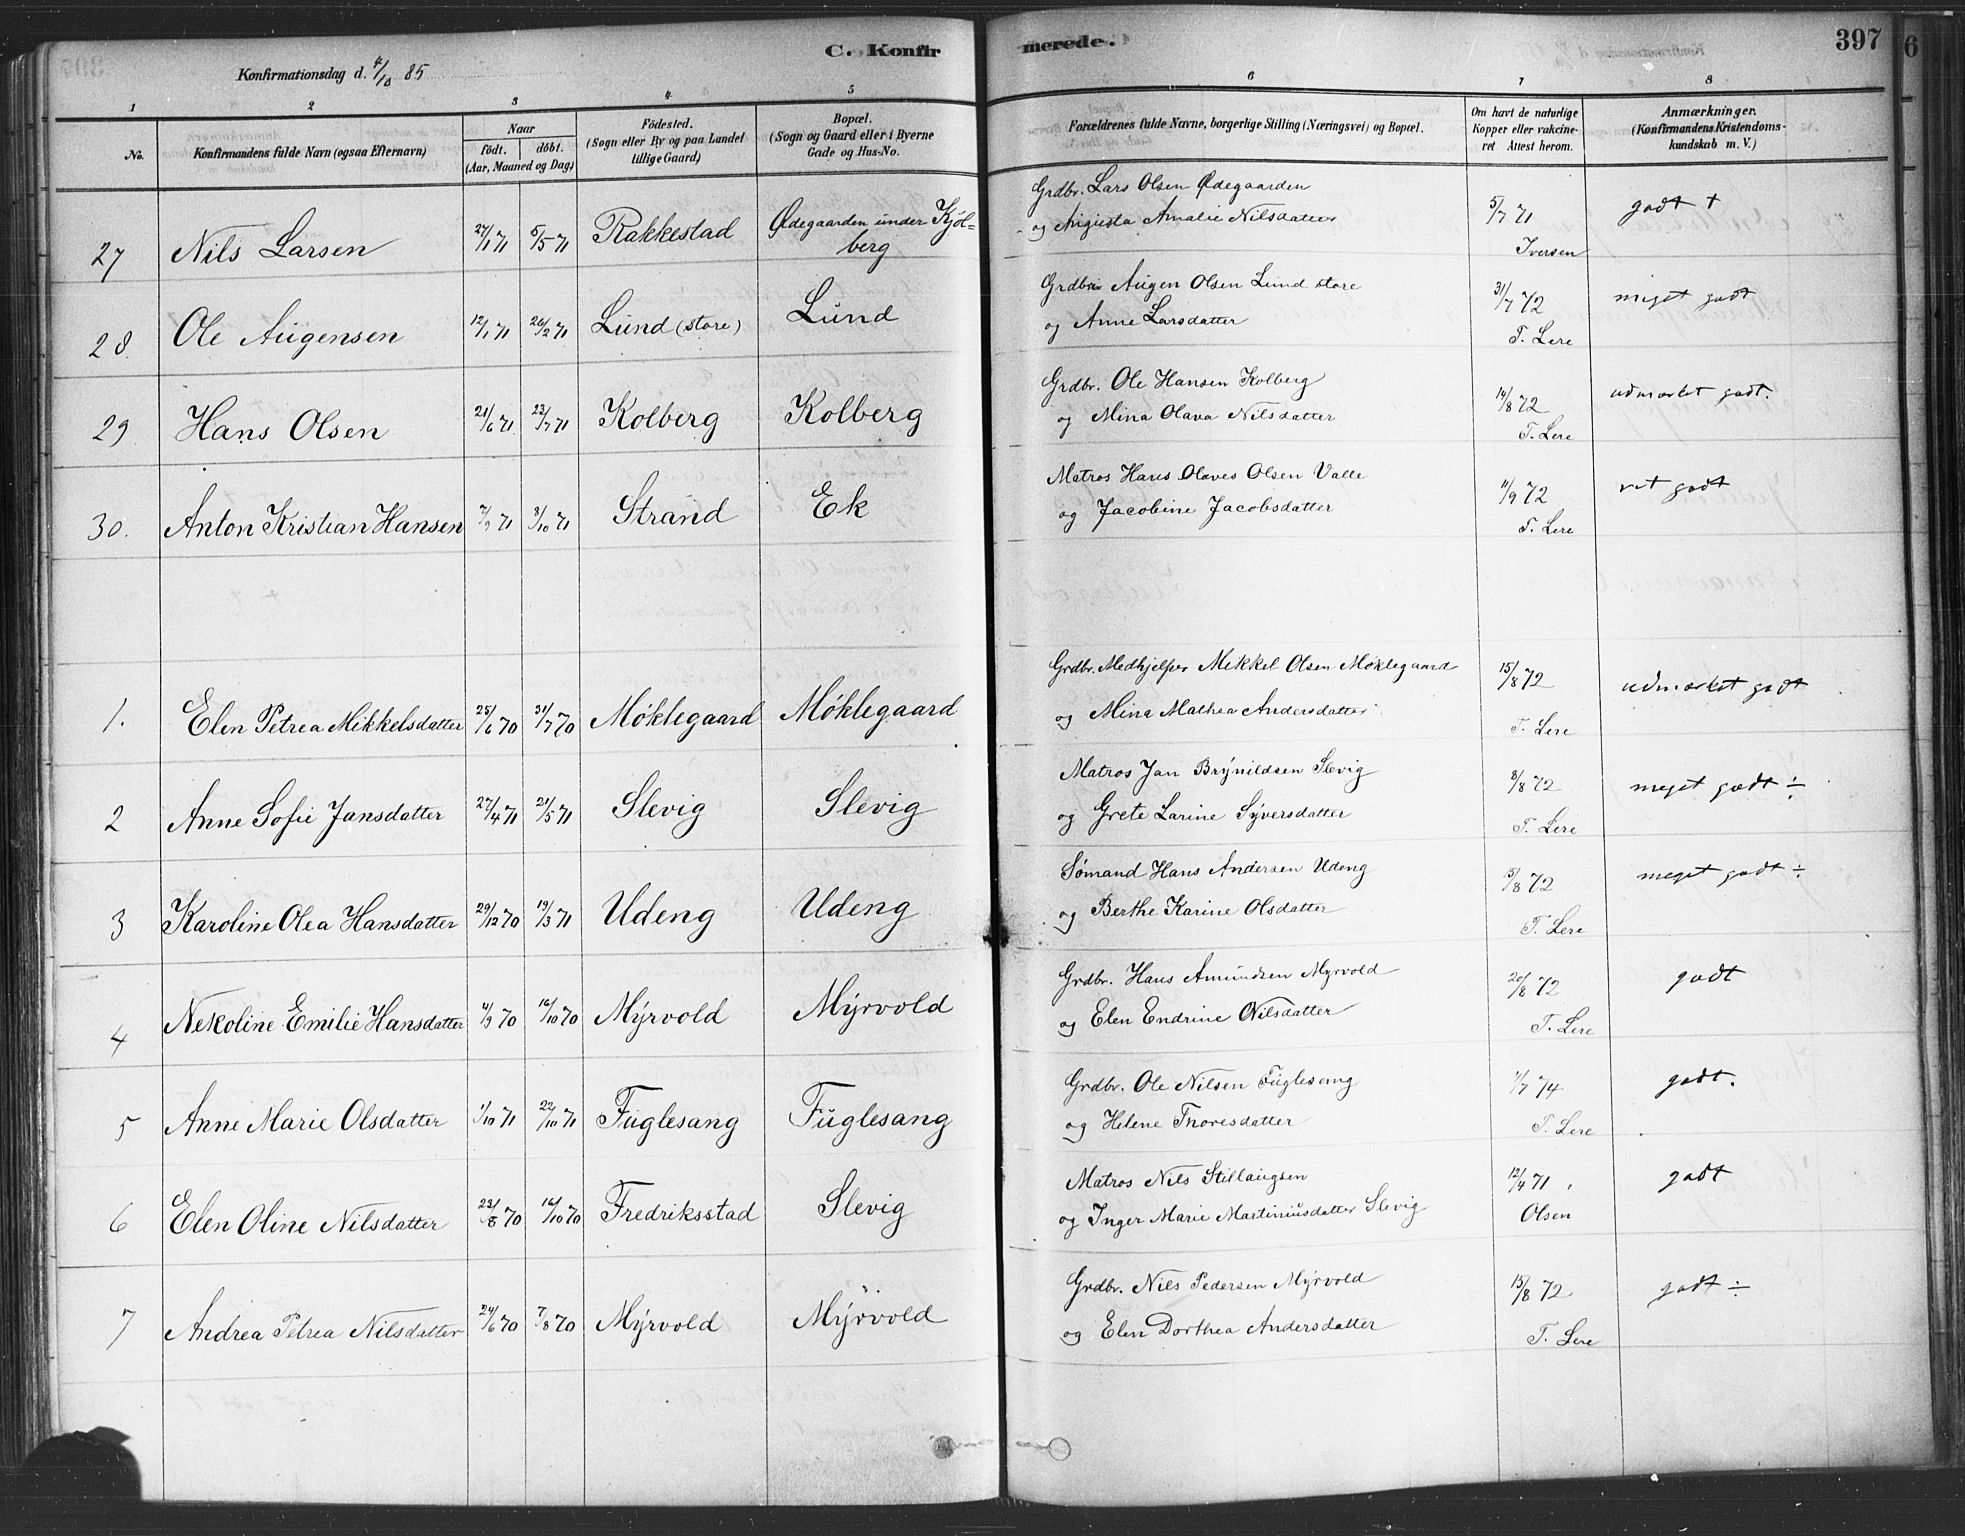 C. Konfir
merede.
397
6
Konfirmationsdag d. 4/10 85
1 2 3 4 5 6 7 8
No.
Konfirmandens fulde Navn (ogsaa Efternavn)
Naar
födt. döbt.
(Aar, Maaned og Dag)
Födested.
(Sogn eller By og paa Landet
tillige Gaard)
Bopæl.
(Sogn og Gaard eller i Byerne
Gade og Hus-No.
Forældrenes fulde Navne, borgerlige Stilling (Næringsvei) og Bopæl.
Om havt de naturlige
Kopper eller vakcine-
ret. Attest herom.
Anmærkninger.
(Konfirmandens Kristendoms-
kundskab m. V.)
27 Nils Larsen 27/1 71 5/5 71 Rakkestad Ødegaarden under Kjöl-
berg
Grdbr. Lars Olsen Ødegaarden
og Augusta Amalie Nilsdatter
5/7 71
Iversen
godt +
28 Ole Augensen 12/1 71 26/2 71 Lund (store) Lund
Augen Olsen Lund store
og Anne Larsdatter
31/7 72
T. Lere
meget godt
29 Hans Olsen 21/6 71 23/7 71 Kolberg Kolberg
Grdbr. Ole Hansen Kolberg
og Mina Olava Nilsdatter
14/8 72
T. Lere
udmærket godt.
30. Anton Kristian Hansen 7/9 71 8/10 71 Strand Ek
Matros Hans Olaves Olsen Valle
og Jacobine Jacobsdatter
11/9 72
T. Lere
ret godt
1. Elen Petrea Mikkelsdatter 25/6 70 31/7 70 Møklegaard Møklegaard
Grdbr. Medhjelper Mikkel Olsen Møklegaard
og Mina Mathea Andersdatter
15/8 72
T. Lere
udmærket godt
2 Anne Sofie Jansdatter 27/4 71 21/5 71 Slevig Slevig
Matros Jan Brynildsen Slevig
og Grete Larine Syversdatter
8/8 72
T. Lere
meget godt ÷
3 Karoline Olea Hansdatter 29/12 70 19/3 71 Udeng Udeng
Sømand Hans Andersen Udeng
og Berthe Karine Olsdatter
15/8 72
T. Lere
meget godt ÷
4 Nekoline Emilie Hansdatter 4/9 70 16/10 70 Myrvold Myrvold
Grdbr. Hans Amundsen Myrvold
og Elen Endrine Nilsdatter
20/8 72
T. Lere
godt
5 Anne Marie Olsdatter 1/10 71 22/10 71 Fuglesang Fuglesang
Grdbr. Ole Nilsen Fuglesang
og Helene Thoresdatter
1/7 74
T. Lere
godt.
6 Elen Oline Nilsdatter 23/8 70 16/10 70 Fredriksstad Slevig
Matros Nils Stillaugsen
og Inger Marie Martiniusdatter Slevig
12/4 71
Olsen
godt
7 Andrea Petrea Nilsdatter 24/6 70 7/8 70 Myrvold Myrvold
Grdbr. Nils Pedersen Myrvold
og Elen Dorthea Andersdatter
15/8 72
T. Lere
godt ÷